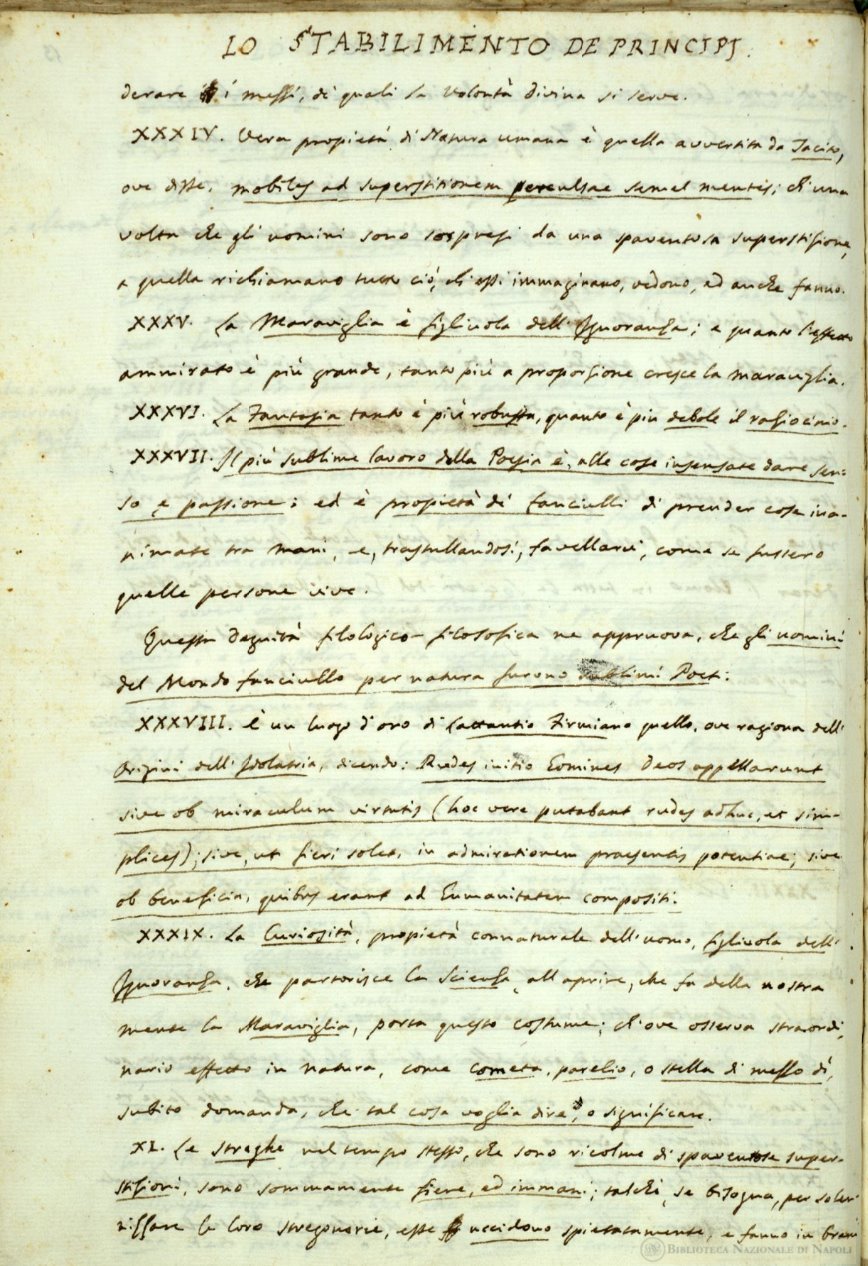 LO STABILIMENTO DE PRINCIPJ.
derare i messi, de' quali la Volontà divina si serve.
XXXIV. Vera propietà di Natura umana è quella avvertita da Tacito,
ove disse, mobiles ad superstitionem perculsae semel mentes; ch'una
volta che gli uomini sono sorpresi da una spaventosa superstizione,
a quella richiamano tutto ciò, ch'essi immaginano, vedono, ed anche fanno.
XXXV. La Maraviglia è figliuola dell'Ignoranza; e quanto l'effetto
ammirato è più grande, tanto più a proporzione cresce la maraviglia.
XXXVI. La Fantasia tanto è più robusta, quanto è più debole il raziocinio.
XXXVII. Il più sublime lavoro della Poesia è, alle cose insensate dare sen-
so e passione; ed è propietà de' fanciulli di prender cose ina-
nimate tra mani, e, trastullandosi, favellarvi, come se fussero
quelle persone vive.
Questa Degnità filologico-filosofica ne appruova, che gli uomini
del Mondo fanciullo per natura furono sublimi Poeti.
XXXVIII. È un luogo d'oro di Lattantio Firmiano quello, ove ragiona dell'
Origini dell'Idolatria, dicendo: Rudes initio homines Deos appellarunt
sive ob miraculum virtutis (hoc vere putabant rudes adhuc, et sim-
plices); sive, ut fieri solet, in admirationem praesentis potentiae; sive
ob beneficia, quibus erant ad humanitatem compositi.
XXXIX. La Curiosità, propietà connaturale dell'uomo, figliuola dell'
Ignoranza, che partorisce la Scienza, all'aprire, che fa della nostra
mente la Maraviglia, porta questo costume; ch'ove osserva straordi-
nario effetto in natura, come cometa, parelio, o stella di mezzo dì,
subito domanda, che tal cosa voglia dire, o significare.
XL. Le streghe nel tempo stesso, che sono ricolme di spaventose super-
stizioni, sono sommamente fiere, ed immani; talché, se bisogna, per solen-
nizzare le loro stregonerie, esse uccidono spietatamente, e fanno in bran
BIBLIOTECA NAZIONALE DI NAPOLI